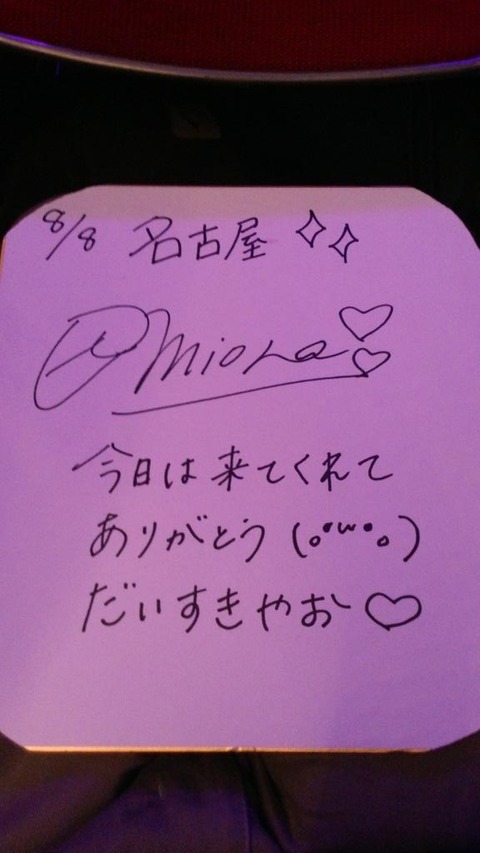 8/8 名古屋
今日は来てくれて
ありがとう (｡•ʷ•｡)
だいすきやお♡